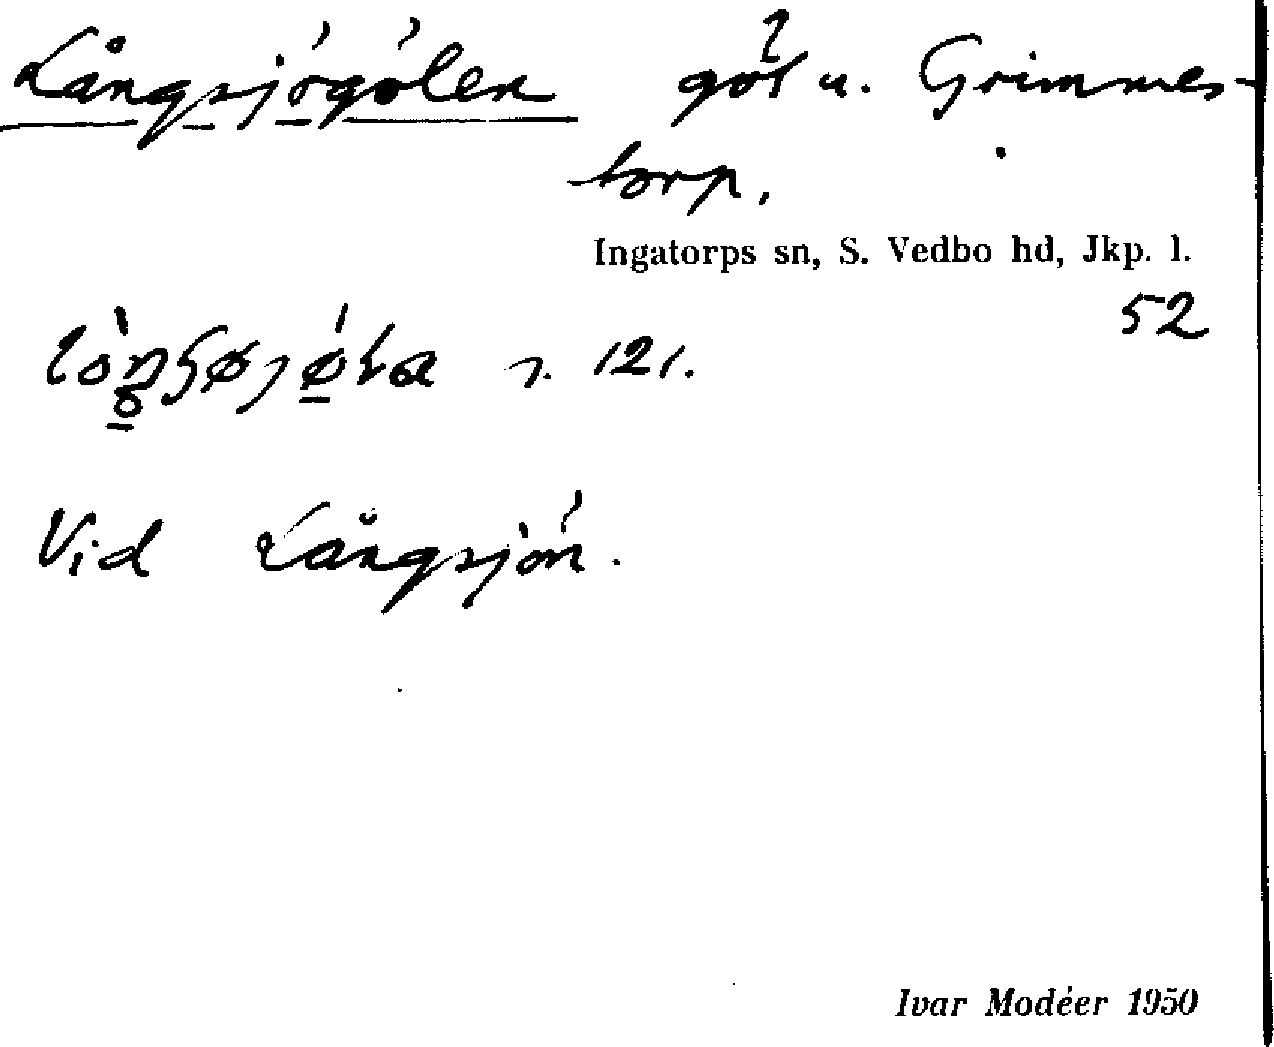 Långsjögölen göl u. Grimmes-
torp.
Ingatorps sn, S. Vedbo hd, Jkp. l.
52
121.
Vid Långsjön.
Ivar Modéer 1950